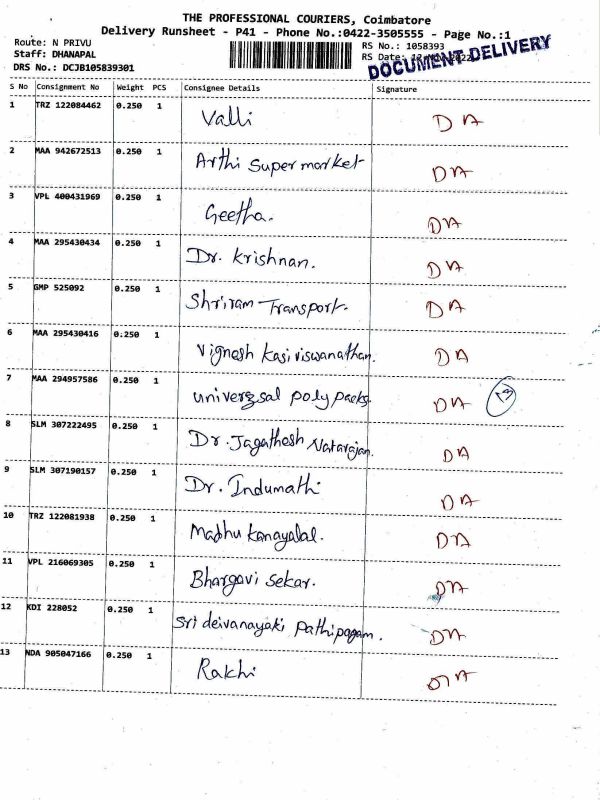 THE PROFESSIONAL COURIERS, Coimbatore
Delivery Runsheet - P41 - Phone No.:0422-3505555 - Page No.:1
Route: N PRIVU RS No.: 1058393
Staff: DHANAPAL RS Date: 2022
DRS No.: DCJB105839301 DOCUMENT DELIVERY
S No Consignment No Weight PCS Consignee Details Signature
1 TRZ 122084462 0.250 1 Valli DA
2 MAA 942672513 0.250 1 Arthi Supermarket DA
3 VPL 400431969 0.250 1 Geetha. DA
4 MAA 295430434 0.250 1 Dr. Krishnan. DA
5 GMP 525092 0.250 1 Shriram Transport. DA
6 MAA 295430416 0.250 1 Vignesh Kasi viswanathan. DA
7 MAA 294957586 0.250 1 univerzsal poly packs. DA 13
8 SLM 307222495 0.250 1 Dr. Jagathesh Natarajan. DA
9 SLM 307190157 0.250 1 Dr. Indumathi DA
10 TRZ 122081938 0.250 1 Madhu Kanayalal. DA
11 VPL 216069305 0.250 1 Bhargavi Sekar. DA
12 KDI 228052 0.250 1 Sri deivanayaki Pathipagam. DA
13 NDA 905047166 0.250 1 Rakhi DA